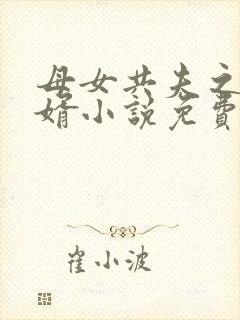 母女共夫之
婿小説免費
崔小波